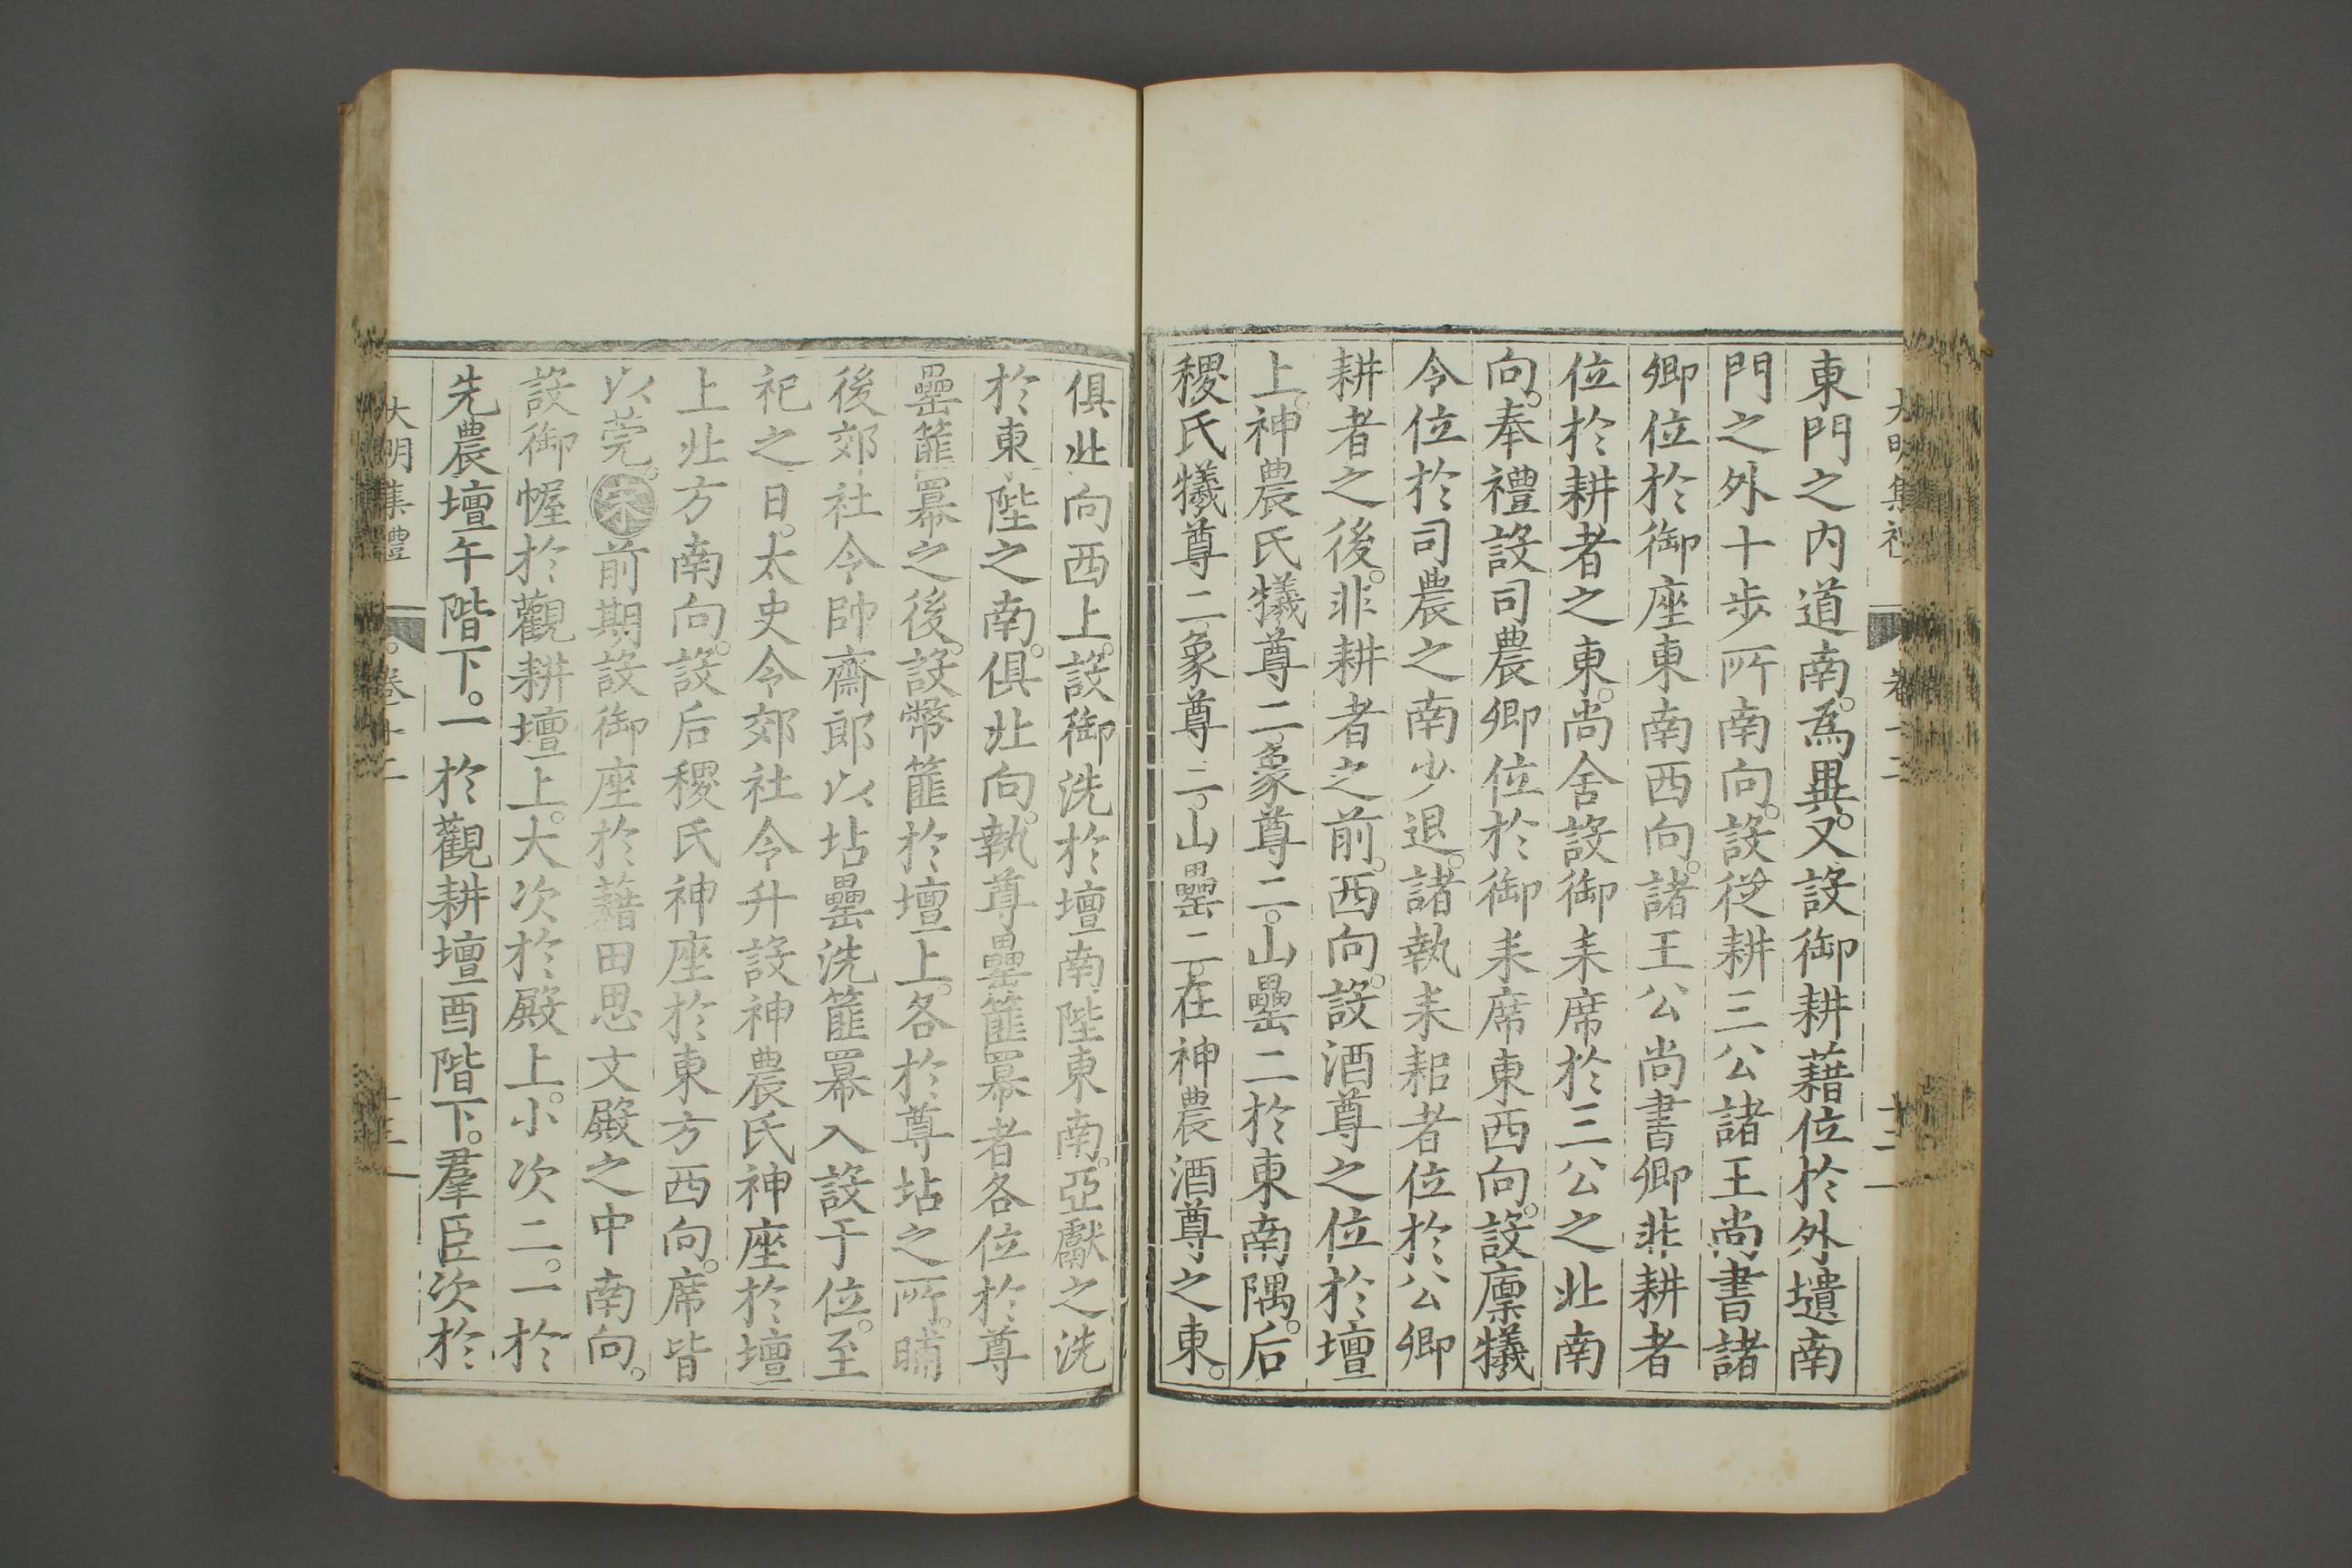 東門之内道南。爲異。又設御耕藉位於外壝南
門之外十歩所南向。設從耕三公諸王尚書諸
卿位於御座東南西向。諸王公尚書卿非耕者
位於耕者之東。尚舍設御耒席於三公之北南
向。奉禮設司農卿位於御耒席東西向。設廪犧
令位於司農之南少退。諸執耒耜者位於公卿
耕者之後。非耕者之前。西向。設酒尊之位於壇
上。神農氏犧尊二。象尊二。山罍二於東南隅。后
稷氏犧尊二。象尊二。山罍二。在神農酒尊之東。
俱北向西上。設御洗於壇南陛東南。亞獻之洗
於東陛之南。俱北向。執尊罍篚冪者各位於尊
罍篚冪之後。設幣篚於壇上。各於尊坫之所。晡
後郊社令帥齋郎以坫罍洗篚冪入設于位。至
祀之日。太史令郊社令升設神農氏神座於壇
上北方南向。設后稷氏神座於東方西向。席皆
以莞。宋前期設御座於藉田思文殿之中南向。
設御幄於觀耕壇上。大次於殿上。小次二。一於
先農壇午階下。一於觀耕壇酉階下。羣臣次於
大明集禮 卷十二 十三